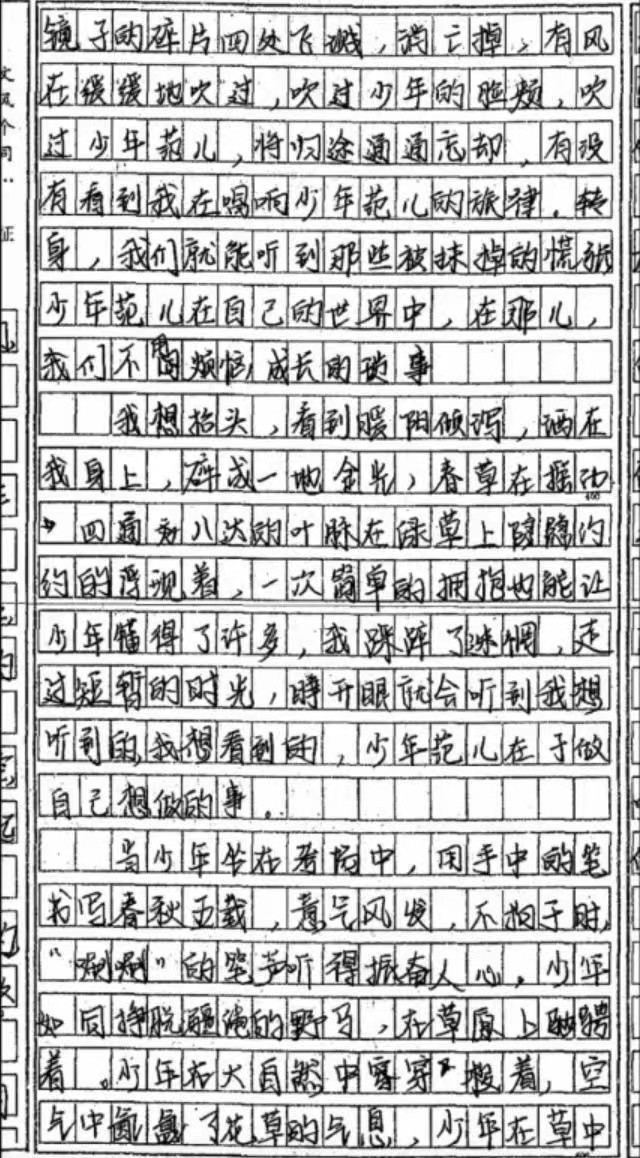 镜子的碎片四处飞溅，消亡掉，有风
在缓缓地吹过，吹过少年的脸颊，吹
过少年范儿，将归途通通忘却，有没
有看到我在唱响少年范儿的旋律。转
身，我们就能听到那些被抹掉的慌张
少年范儿在自己的世界中，在那儿，
我们不用烦恼成长的琐事
我想抬头，看到暖阳倾泻，洒在
我身上，碎成一地金光，春草在摇动
四通八达的叶脉在绿草上隐隐约
约的浮现着，一次简单的拥抱也能让
少年懂得了许多，我踩碎了迷惘，走
过短暂的时光，睁开眼就会听到我想
听到的，我想看到的，少年范儿在于做
自己想做的事。
当少年坐在考场中，用手中的笔
书写春秋五载，意气风发，不拘于时，
“唰唰”的笔声听得振奋人心。少年
如同挣脱缰绳的野马，在草原上驰骋
着。少年在大自然中穿梭着，空
气中充盈了花草的气息，少年在草中